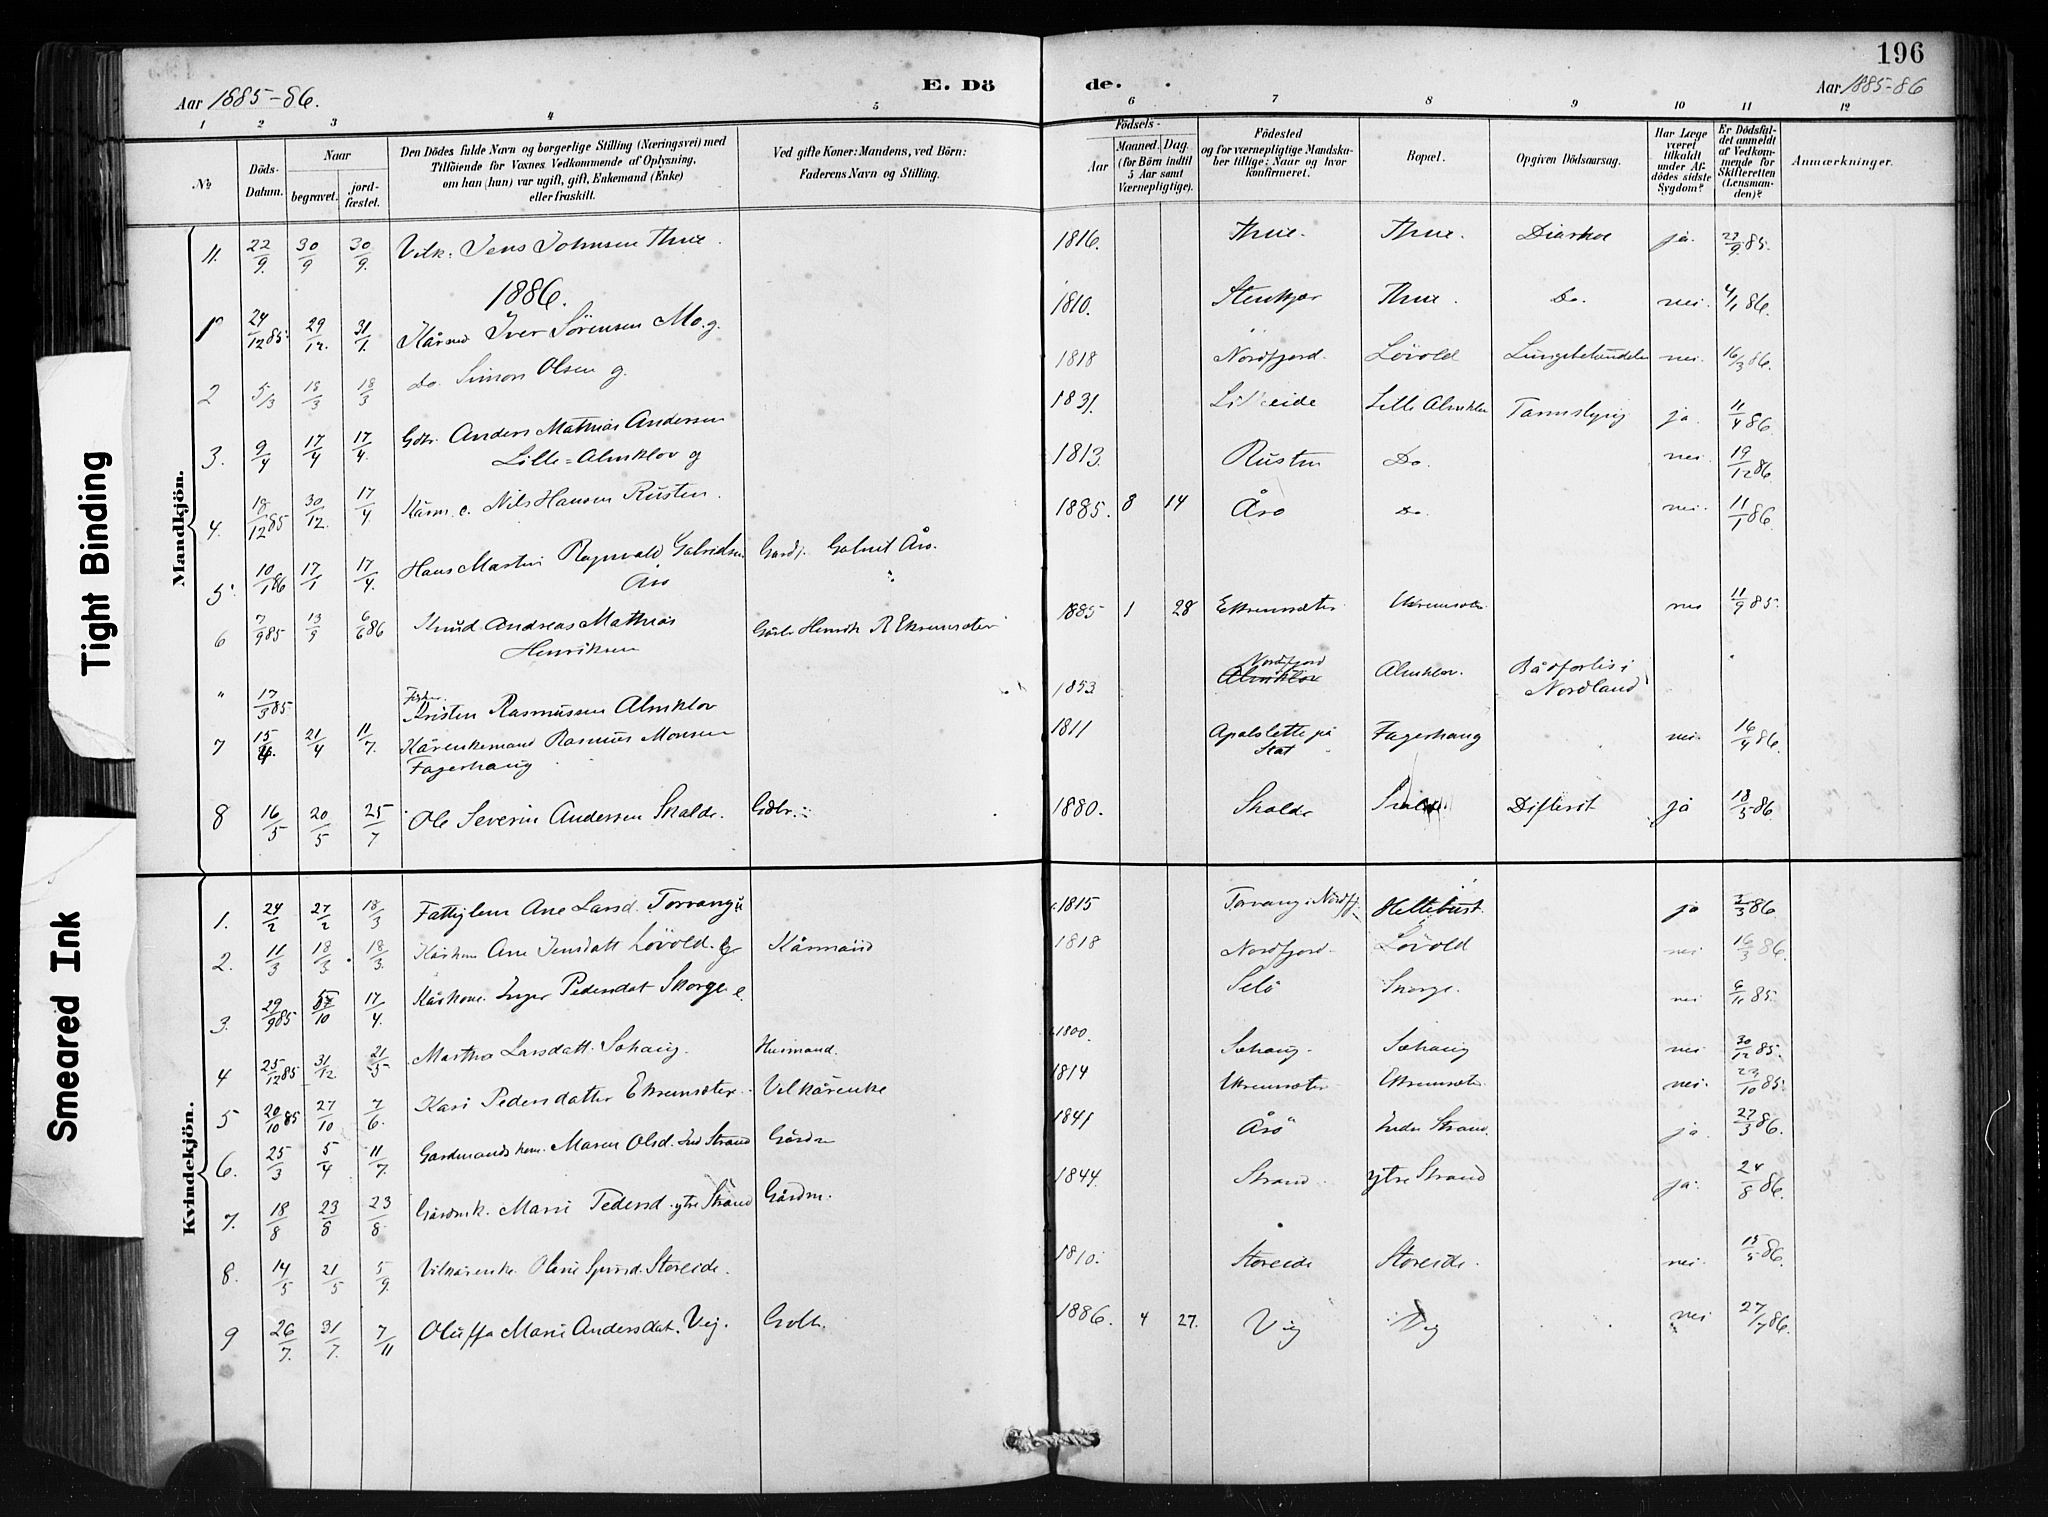 196
Aar 1885-86.
E. Döde.
Aar 1885-86
1 2 3 4 5 6 7 8 9 10 11 12
№
Döds-Datum.
Naar
begravet.
jord-fæstet.
Den Dödes fulde Navn og borgerlige Stilling (Næringsvei) med
Tilföiende for Voxnes Vedkommende af Oplysning,
om han (hun) var ugift, gift, Enkemand (Enke)
eller fraskilt.
Ved gifte Koner: Mandens, ved Börn:
Faderens Navn og Stilling.
Födsels-
Aar
Maaned. Dag.
(for Börn indtil
5 Aar samt
Værnepligtige).
Födested
og for værnepligtige Mandska-
ber tillige: Naar og hvor
konfirmeret.
Bopæl.
Opgiven Dödsaarsag.
Har Læge
været
tilkaldt
under Af-
dödes sidste
Sygdom?
Er Dödsfal-
det anmeldt
af Vedkom-
mende for
Skifteretten
(Lensman-
den)?
Anmærkninger.
Mandkjön.
11. 22/9. 30/9 30/9. Vilk. Jens Johnsen Thue. 1816. Thue. Thue. Diarhoe ja. 22/9 85.
1886.
1 24/12 85. 29/12. 31/1. Iver Sörensen Mo. g. 1810. Stenkjær Thue. Do. nei. 4/1 86.
2 5/3 18/3 18/3 Do. Simon Olsen g. 1818 Nordfjord. Lövold nei. 16/3 86.
3. 9/4 17/4 17/4. Gdbr. Anders Mathias Andersen
Lille-Almklov g 1831. Lille Almklov ja. 11/4 86.
4. 18/12 85 30/12. 17/4. Nils Hansen Rusten. 1813. Rusten Do. nei. 19/12 86
5. 10/1 86 17/1 17/4. Hans Martin Ragnvald Gabrielsen
Årö 1885. 8 14 Årö Do nei. 11/1 86.
6 7/9 85 13/9 6/6 86 Knud Andreas Mathias
Henriksen Henrik R Ekremsæter 1885 1 28 Ekremsæter Ekremsæter nei 11/9 85.
" 17/3 85. Fisker.
Kristen Rasmussen Almklov 1853 Nordfjord
Almklov Almklov. Bådforlis i
Nordland
7 15/4 21/4 11/7. Kårenkemand Rasmus Monsen
Fagerhaug 1811 Apalslette på
Stat Fagerhaug nei. 16/4 86.
8 16/5 20/5 25/7 Ole Severin Andersen Skalde. Gdbr. 1880. Skalde Skalde. Difterit ja 18/5 86.
Kvindekjön.
1. 24/2 27/2 18/3 Fattiglem Ane Larsd. Torvang u 1815 Torvang i Nordfj. Hellebust. ja 2/3 86.
2. 11/3 18/3 18/3. Ane Jensdatt Lövold. g Kårmand 1818 Nordfjord Lövold nei 16/3 86.
3. 29/9 85 /10 17/4. Kårkone. Inger Pedersdat Skorge e. Selö Skorge. nei 6/11 85.
4 25/12 85 31/12 21/5 Martha Larsdatt. Sohaug. Husmand. 1800. Sohaug. Sohaug nei 30/12 85.
5 20/10 85 27/10 7/6. Kari Pedersdatter Ekremsæter. Vilkårenke 1814 Ekremsæter Ekremsæter nei. 23/10 85.
6. 25/3 5/4 11/7. Gardmandskone. Maren Olsd. Ind Strand Gårdm 1841 Årö Indre Strand. ja. 27/3 86.
7. 18/8 23/8 23/8. Gårdmk. Marie Pedersd. ytre Strand Gårdm. 1844. Strand. ytre Strand ja. 24/8 86.
8. 14/5 21/5 5/9. Vilkårenke. Oline Storeide. 1810. Storeide Storeide. nei. 18/5 86.
9 26/7. 31/7. 7/11 Oluffa Marie Andersdat. Vig. Gdbr. 1886. 4 27. Vig Vig nei 27/7 86.
Tight Binding
Smeared Ink